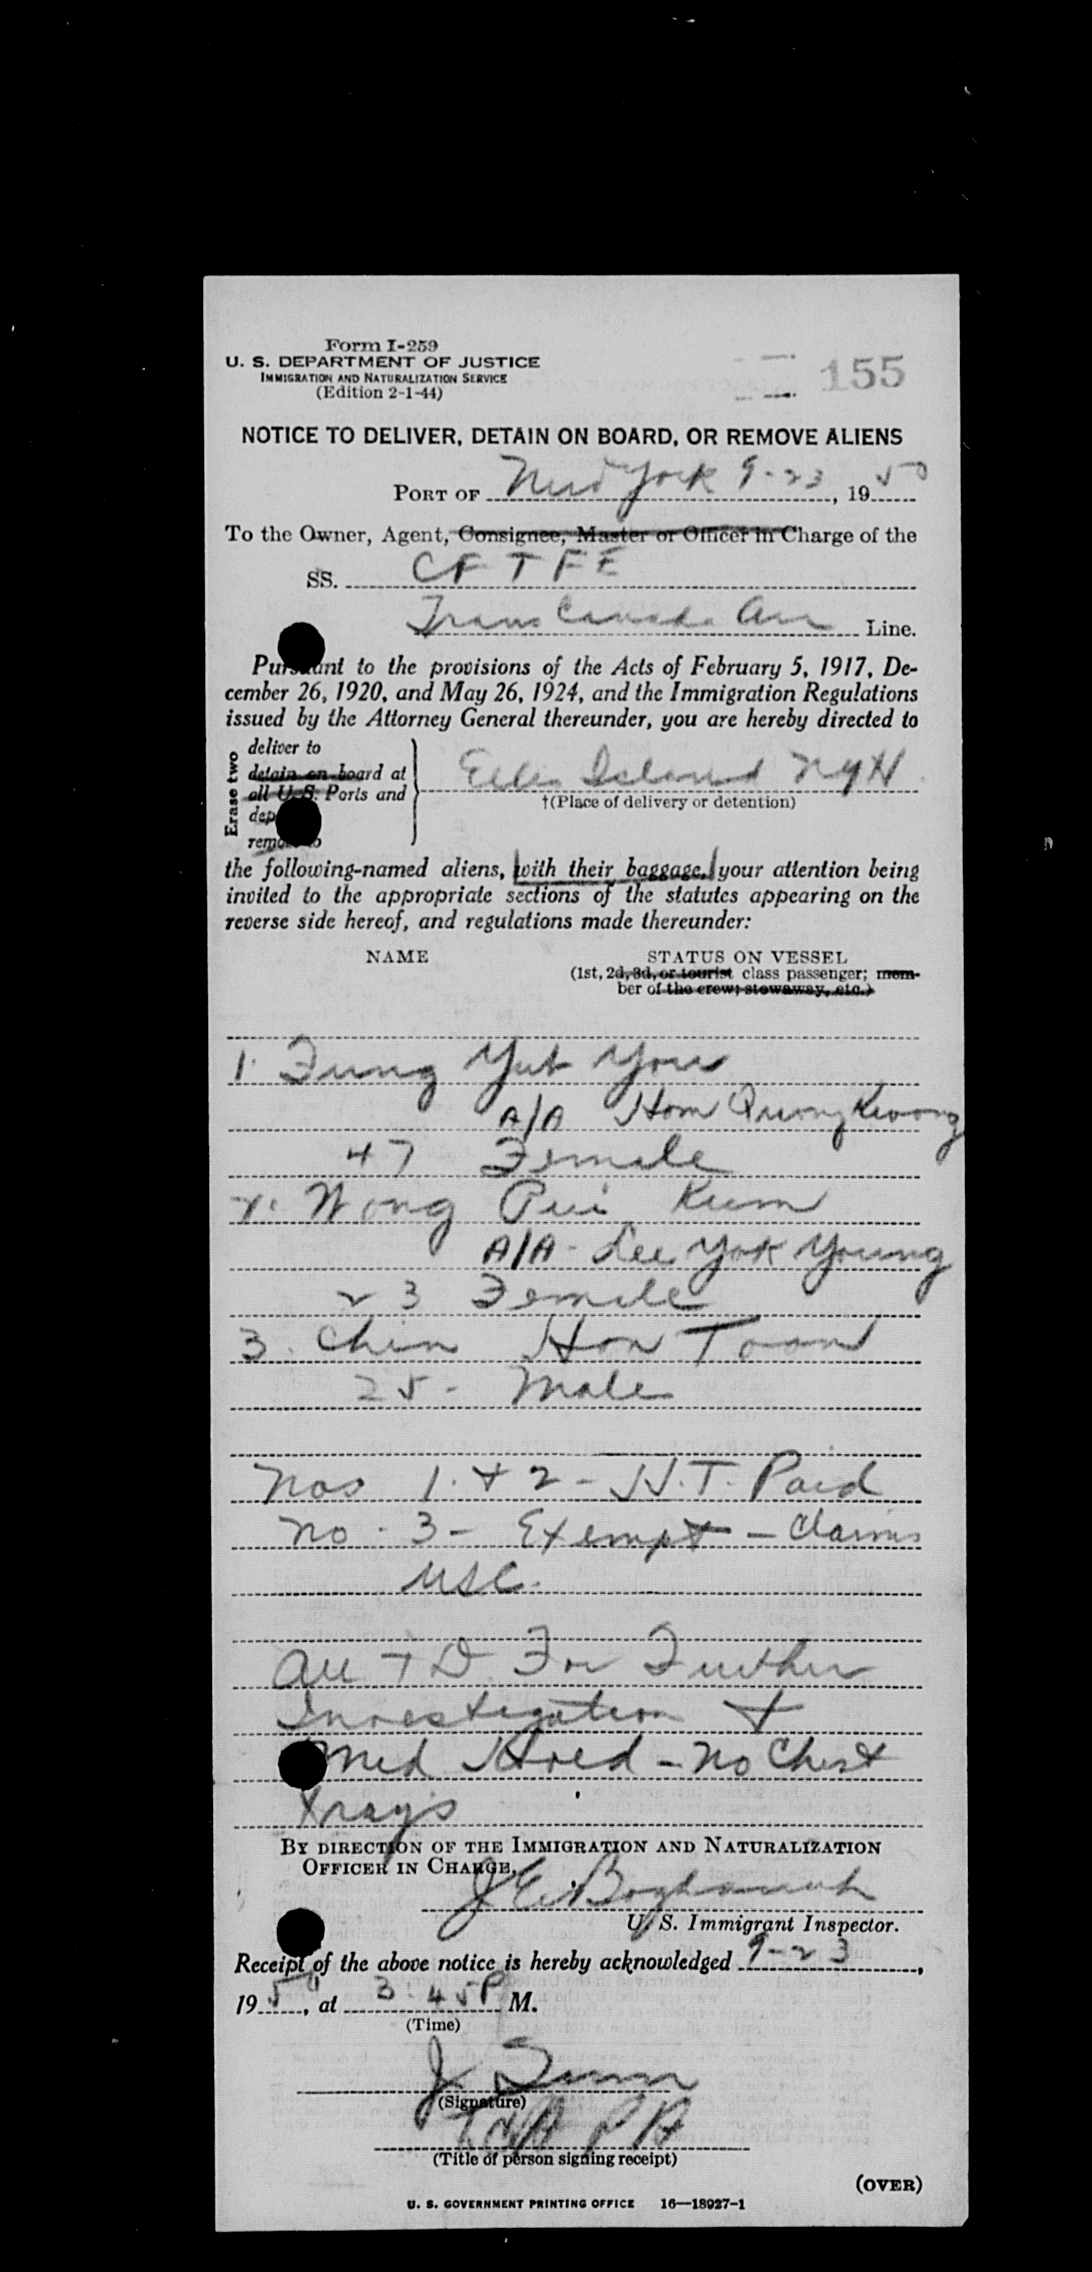 Form I-259
U. S. DEPARTMENT OF JUSTICE
IMMIGRATION AND NATURALIZATION SERVICE
(Edition 2-1-44)
155
NOTICE TO DELIVER, DETAIN ON BOARD, OR REMOVE ALIENS
PORT OF New York 9-23, 1950
To the Owner, Agent, Consignee, Master or Officer in Charge of the
SS. CF TFE
Trans Canada Air Line.
Pursuant to the provisions of the Acts of February 5, 1917, De-
cember 26, 1920, and May 26, 1924, and the Immigration Regulations
issued by the Attorney General thereunder, you are hereby directed to
Erase two
deliver to
detain on board at
all U.S. Ports and
remove to
Ellis Island NYH
†(Place of delivery or detention)
the following-named aliens, with their baggage, your attention being
invited to the appropriate sections of the statutes appearing on the
reverse side hereof, and regulations made thereunder:
NAME
STATUS ON VESSEL
(1st, 2d, 3d, or tourist class passenger; mem-
ber of the crew; stowaway, etc.)
1. Fung Yut You
A/A Hom Quong Kwong
47 Female
2. Wong Pui Kum
A/A - Lee Yok Young
23 Female
3. Chin Hon Toan
25 - Male
Nos 1 & 2 - H.T. Paid
No. 3 - Exempt - Claims
USC.
All TD For Further
Investigation +
Med Hold - No Chest
Xrays
BY DIRECTION OF THE IMMIGRATION AND NATURALIZATION
OFFICER IN CHARGE,
J E
U. S. Immigrant Inspector.
Receipt of the above notice is hereby acknowledged 9-23,
1950, at 3:45 P M.
(Time)
J.
(Signature)
(Title of person signing receipt)
(OVER)
U. S. GOVERNMENT PRINTING OFFICE 16—18927-1